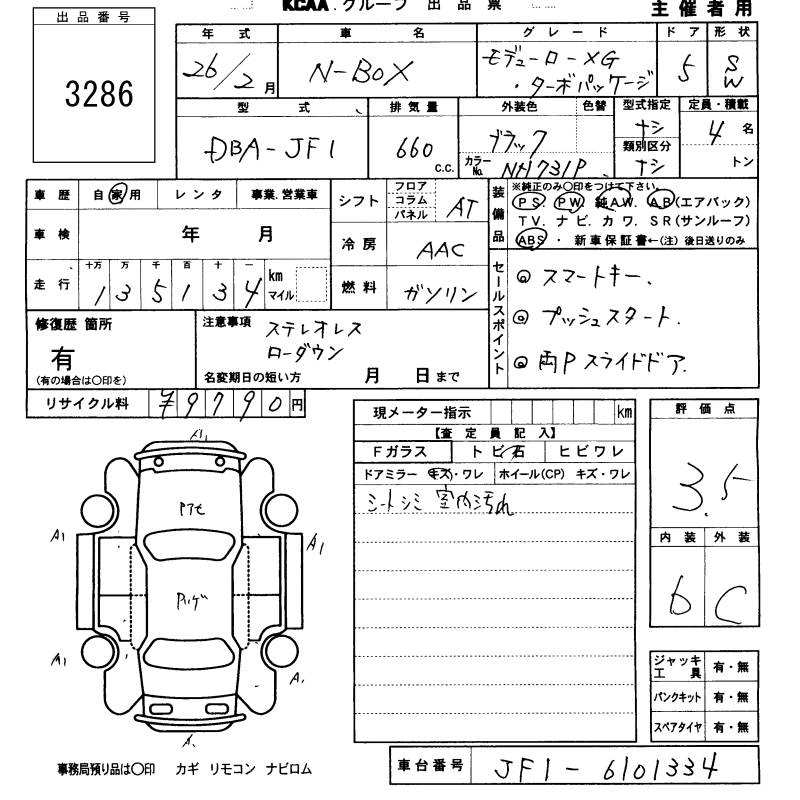 出品番号 KCAA.グループ 出品票 主催者用
3286
年式 車名 グレード ドア 形状
26/2月 N-BOX モデューロ-XG ・ターボパッケージ 5 SW
型式 排気量 外装色 色替 型式指定 定員・積載
DBA-JF1 660 c.c. ブラック カラーNo. NH731P ナシ 4名
類別区分 ナシ トン
車歴 自家用 レンタ 事業.営業車 シフト フロア コラム パネル AT
装備品 ※純正のみ○印をつけて下さい。
PS PW 純AW. AB(エアバック)
TV. ナビ. カワ. SR(サンルーフ)
ABS ・新車保証書←(注) 後日送りのみ
車検 年 月 冷房 AAC
走行 十万 万 千 百 十 一 km マイル
135134
燃料 ガソリン
セールスポイント
◎ スマートキー.
◎ プッシュスタート.
◎ 両Pスライドドア.
修復歴 箇所
有
(有の場合は○印を)
注意事項 ステレオレス
ローダウン
名変期日の短い方 月 日まで
リサイクル料 ¥9790円
現メーター指示 km
【査定員記入】
Fガラス トビ石 ヒビワレ
ドアミラー キズ・ワレ ホイール(CP) キズ・ワレ
シートシミ 室内汚れ
評価点
3.5
内装 外装
b C
A1
Pアセ
A1 A1
Pハゲ
A1 A1
A1
ジャッキ工具 有・無
パンクキット 有・無
スペアタイヤ 有・無
事務局預り品は○印 カギ リモコン ナビロム
車台番号 JF1-6101334